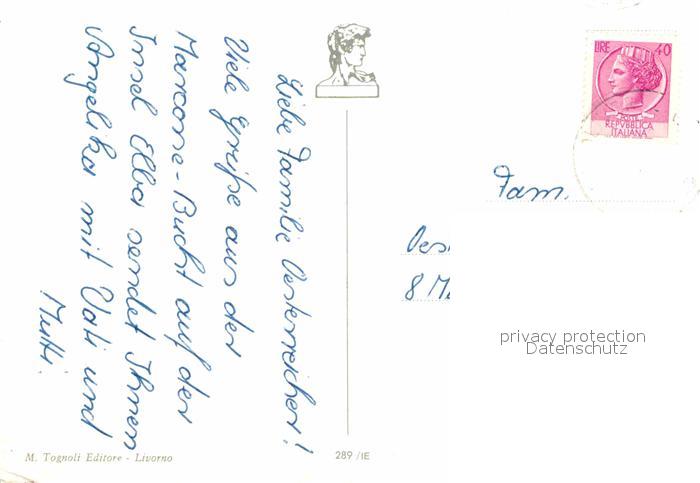 Liebe Familie Oesterreicher!
Viele Grüße aus der
Marcone-Bucht auf der
Insel Elba sendet Ihnen
Angelika mit Vati und
Mutti.
LIRE 40
POSTE
REPVBBLICA
ITALIANA
Fam.
Oes
8 M
privacy protection
Datenschutz
M. Tognoli Editore - Livorno
289/IE